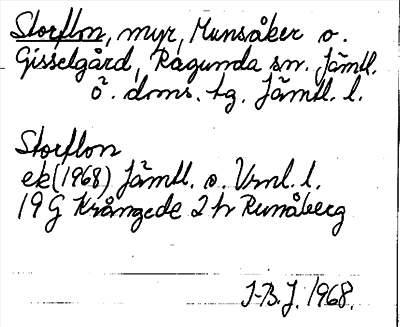 Storflon, myr, Munsåker o.
Gisselgård, Ragunda sn. Jämtl.
ö. doms. tg. Jämtl. l.
Storflon
ek (1968) Jämtl. o. Vrnl. l.
19 G Krångede 2 h Runåberg
J-B.J. 1968.